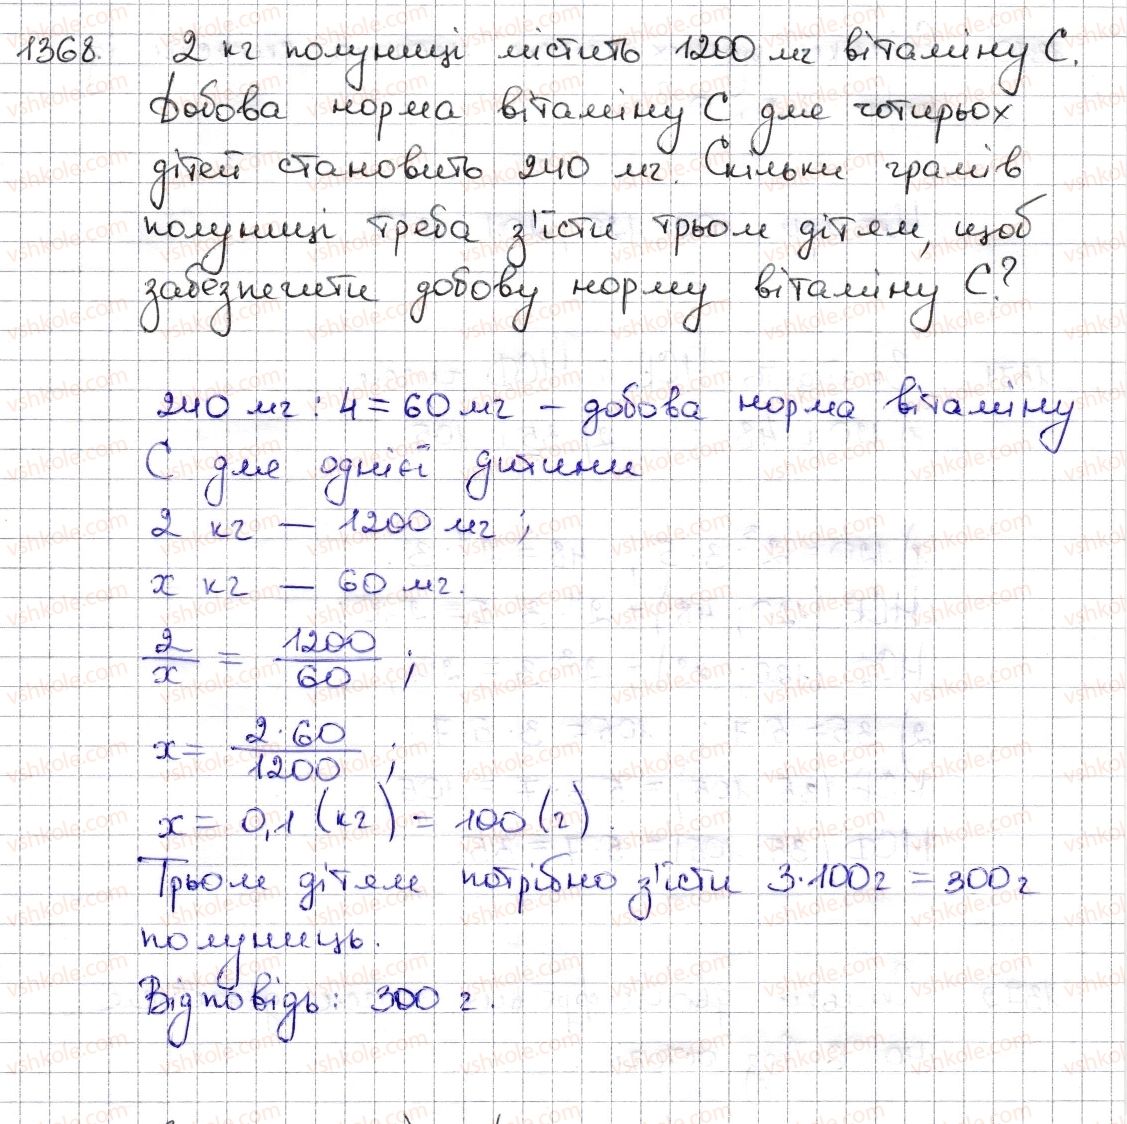 1368. 2 кг полуниці містить 1200 мг вітаміну С.
Добова норма вітаміну С для чотирьох
дітей становить 240 мг. Скільки грамів
полуниці треба з'їсти трьом дітям, щоб
забезпечити добову норму вітаміну С?
240 мг : 4 = 60 мг – добова норма вітаміну
С для однієї дитини
2 кг — 1200 мг;
x кг — 60 мг.
2/x = 1200/60;
x = 2·60/1200;
x = 0,1 (кг) = 100 (г).
Трьом дітям потрібно з'їсти 3·100г = 300г
полуниць.
Відповідь: 300 г.
vshkole.com